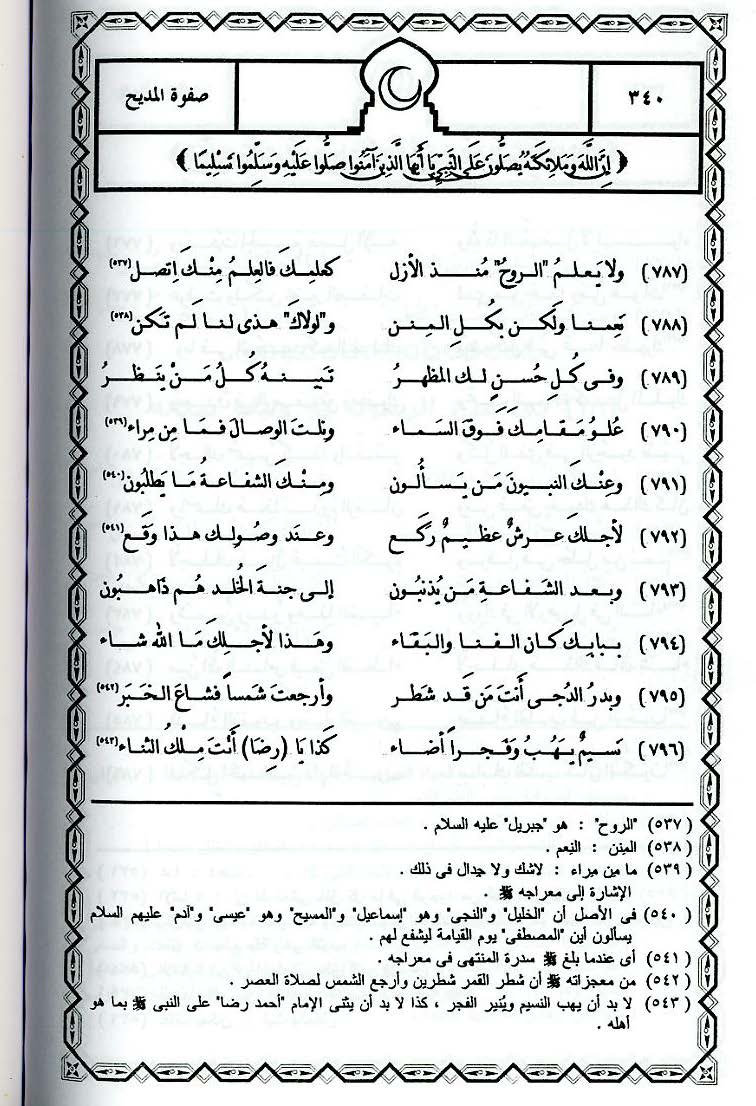 ٣٤٠ صفوة المديح
﴿ إِنَّ اللَّهَ وَمَلَائِكَتَهُ يُصَلُّونَ عَلَى النَّبِيِّ يَا أَيُّهَا الَّذِينَ آمَنُوا صَلُّوا عَلَيْهِ وَسَلِّمُوا تَسْلِيمًا ﴾
(٧٨٧) ولا يَعلمُ "الروحُ" مُنذ الأزل كعلمِكَ فالعِلمُ مِنْكَ اِتصل (٥٣٧)
(٧٨٨) نِعِمنا ولَكن بكلِ المِنن و"لولاك" هذى لنا لَم تَكن (٥٣٨)
(٧٨٩) وفى كُلِ حُسنٍ لكَ المظهرُ تَبينهُ كُلُ مَنْ يَنظرُ
(٧٩٠) عُلوُ مَقامِكَ فَوقَ السَماء ونلتَ الوصالَ فمَا مِن مِراء (٥٣٩)
(٧٩١) وعنِكَ النبيونَ مَن يَسألُون ومِنْكَ الشفاعةُ مَا يَطلُبون (٥٤٠)
(٧٩٢) لأجلكَ عرشٌ عظيمٌ رَكَع وعند وصُولِك هذا وَقَع (٥٤١)
(٧٩٣) وبعد الشفاعةِ مَن يُذنبُون إلى جنةِ الخُلد هُم ذاهبُون
(٧٩٤) ببابِكَ كان الفنا والبَقاء وهَذا لأجلِكَ مَا الله شاء
(٧٩٥) وبدرُ الدُجى أنتَ مَن قَد شَطر وأرجعتَ شَمساً فشاعَ الخَبَر (٥٤٢)
(٧٩٦) نسيمٌ يَهُبُ وَفجراً أضاء كَذا يَا (رِضَا) أَنْتَ مِلْكُ الثناء (٥٤٣)
(٥٣٧) "الروح" : هو "جبريل" عليه السلام .
(٥٣٨) المِنن : النِعم .
(٥٣٩) ما مِن مِراء : لاشك ولا جدال فى ذلك .
الإشارة إلى معراجه ﷺ .
(٥٤٠) فى الأصل أن "الخليل" و"النجى" وهو "إسماعيل" و"المسيح" وهو "عيسى" و"آدم" عليهم السلام
يسألون أين "المصطفى" يوم القيامة ليشفع لهم .
(٥٤١) أى عندما بلغ ﷺ سدرة المنتهى فى معراجه .
(٥٤٢) من معجزاته ﷺ أن شطر القمر شطرين وأرجع الشمس لصلاة العصر .
(٥٤٣) لا بد أن يهب النسيم ويُنير الفجر ، كذا لا بد أن يثنى الإمام "أحمد رضا" على النبى ﷺ بما هو
أهله .